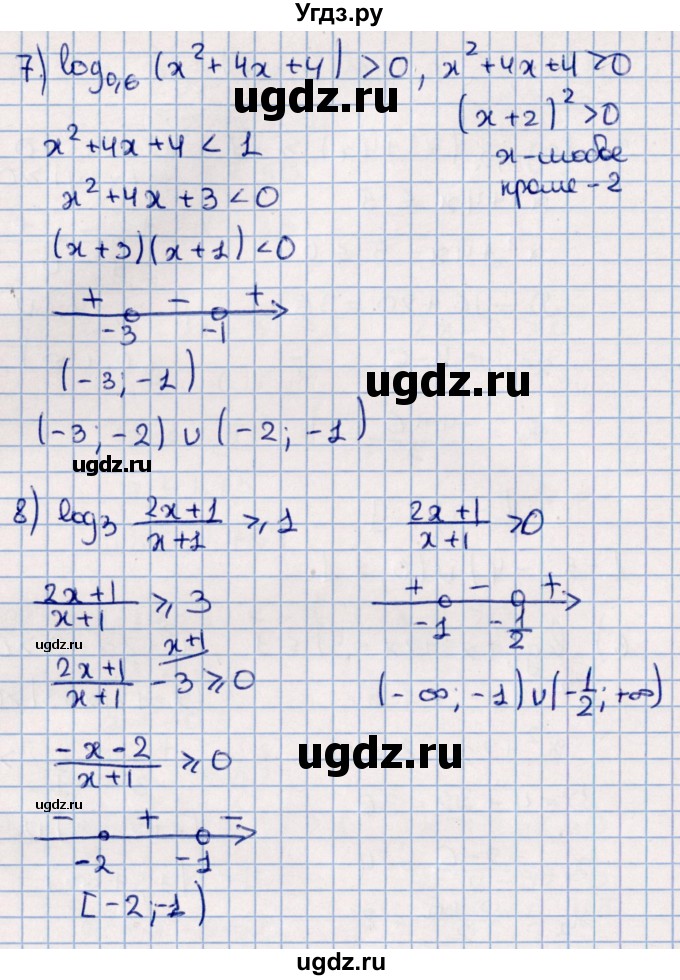 Угдз.ру
7) log₀,₆ (x² + 4x + 4) > 0, x² + 4x + 4 > 0
ugdz.ru
(x + 2)² > 0
x² + 4x + 4 < 1
x - любое
кроме - 2
x² + 4x + 3 < 0
(x + 3)(x + 1) < 0
+ - +
-3 -1
(-3; -1)
ugdz.ru
(-3; -2) ∪ (-2; -1)
ugdz.ru
8) log₃ (2x+1)/(x+1) ⩾ 1
(2x+1)/(x+1) > 0
(2x+1)/(x+1) ⩾ 3
+ - +
-1 -1/2
ugdz.ru
(2x+1)/(x+1) - 3 ⩾ 0
x+1
(-∞; -1) ∪ (-1/2; +∞)
(-x-2)/(x+1) ⩾ 0
ugdz.ru
ugdz.ru
- + -
-2 -1
[-2; -1)
ugdz.ru